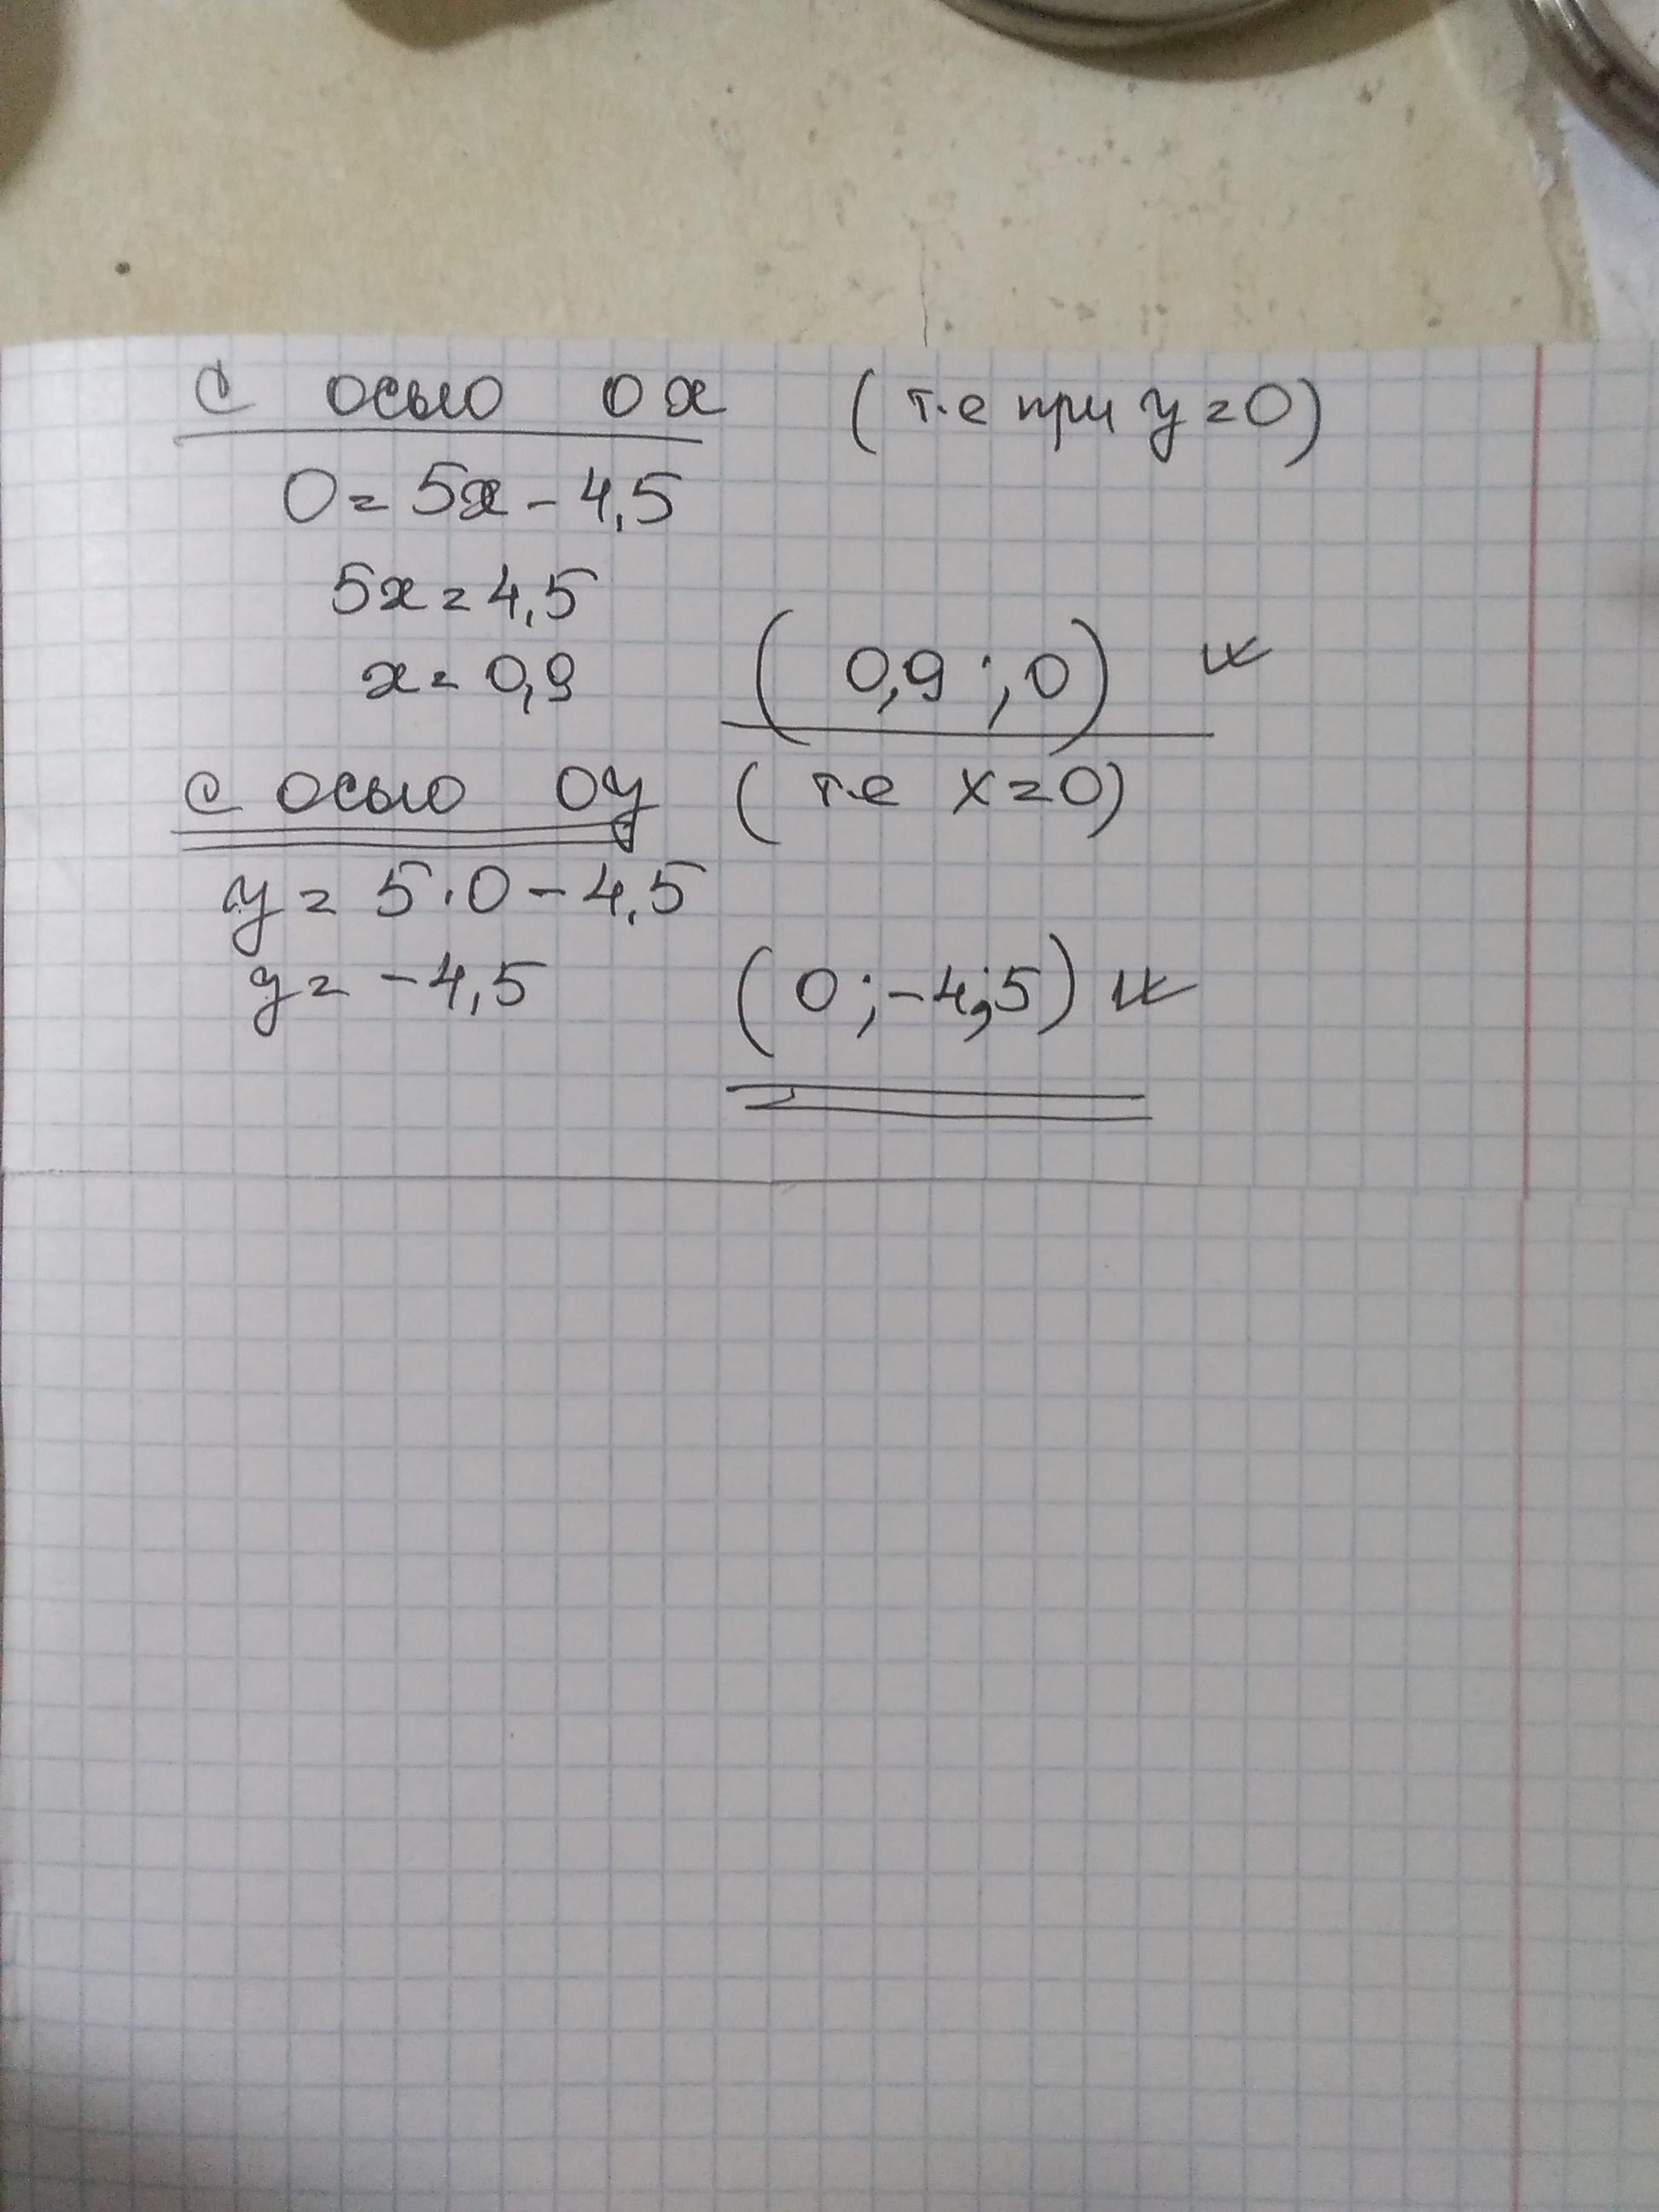 с осью ох (т.е при y=0)
0=5x-4,5
5x=4,5
x=0,9 (0,9;0)
с осью оy (т.е x=0)
y=5·0-4,5
y=-4,5 (0;-4;5)